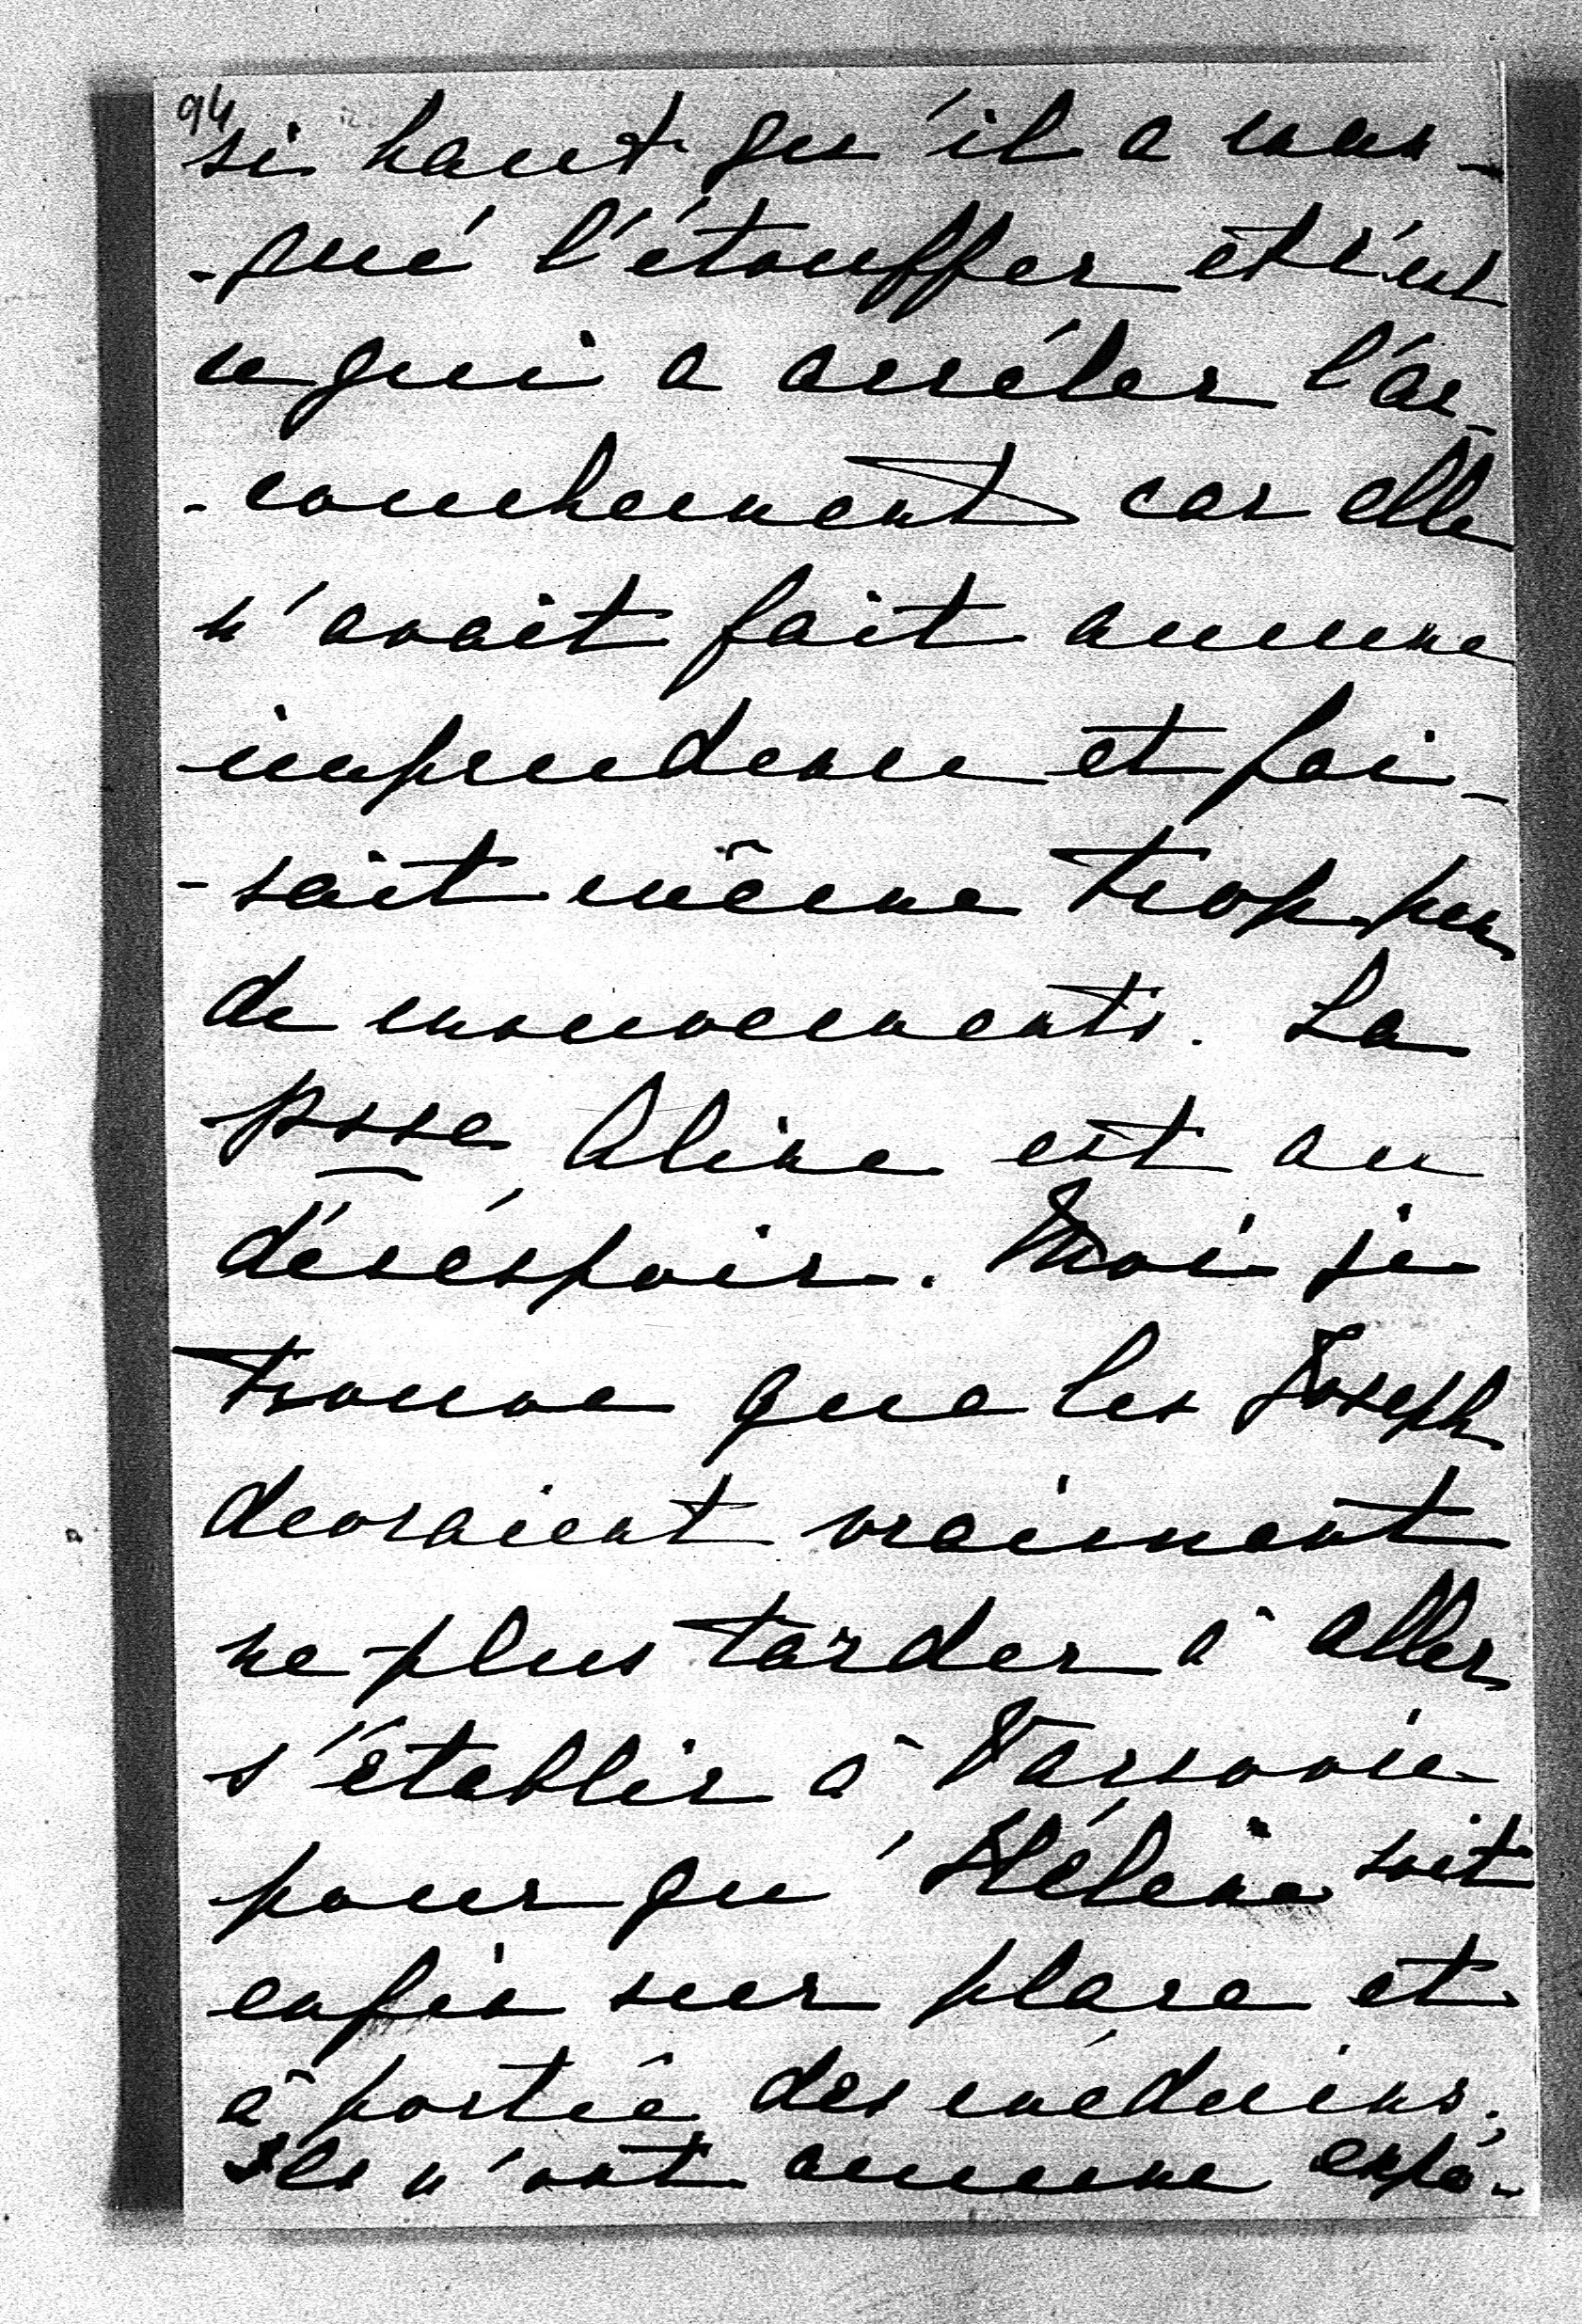 94
si haut qu'il a man-
-qué l'étouffer et c'est
ce qui a arrêter l'ac-
-couchement car elle
n'avait fait aucune
imprudence et fai-
-sait même trop peu
de mouvements. La
psse Aline est au
déséspoir. Moi je
trouve que les Joseph
devraient vraiment
ne plus tarder à aller
s'établir à Varsovie
pour qu'Hélène soit
enfin sur place et
à portée des médecins.
Ils n'ont aucune expé-